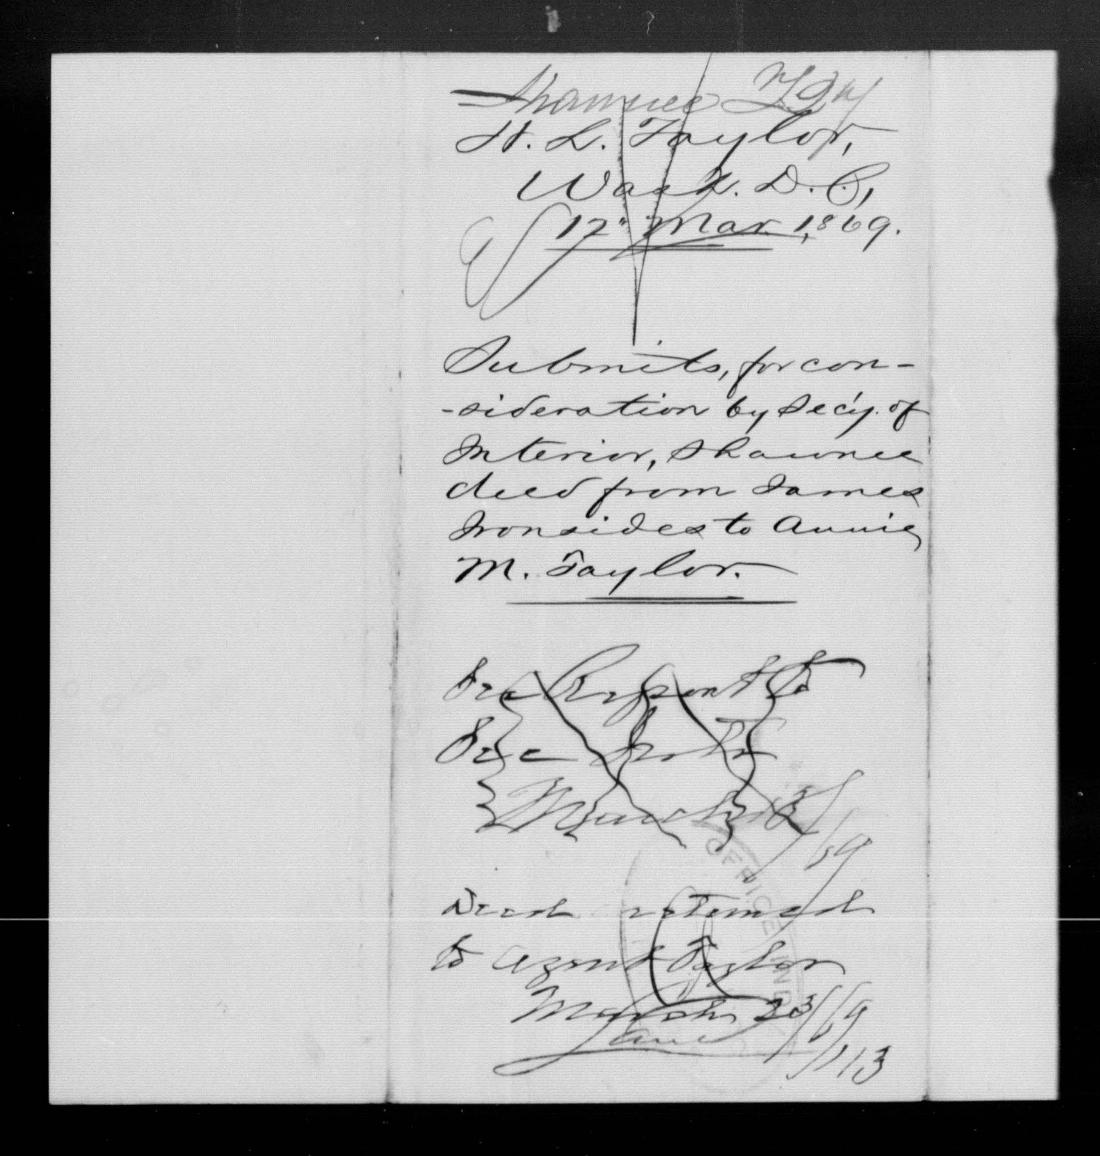 Shawnee
H. L. Taylor,
Wash. D.C.,
12" Mar. 1869.
Submits, for con-
-sideration by Sec'y. of
Interior, Shawnee
deed from James
Ironsides to Annie
M. Taylor.
See Report to
Sec
March
/69
Deed returned
to Agent Taylor
March 23/69
OFFICE IND